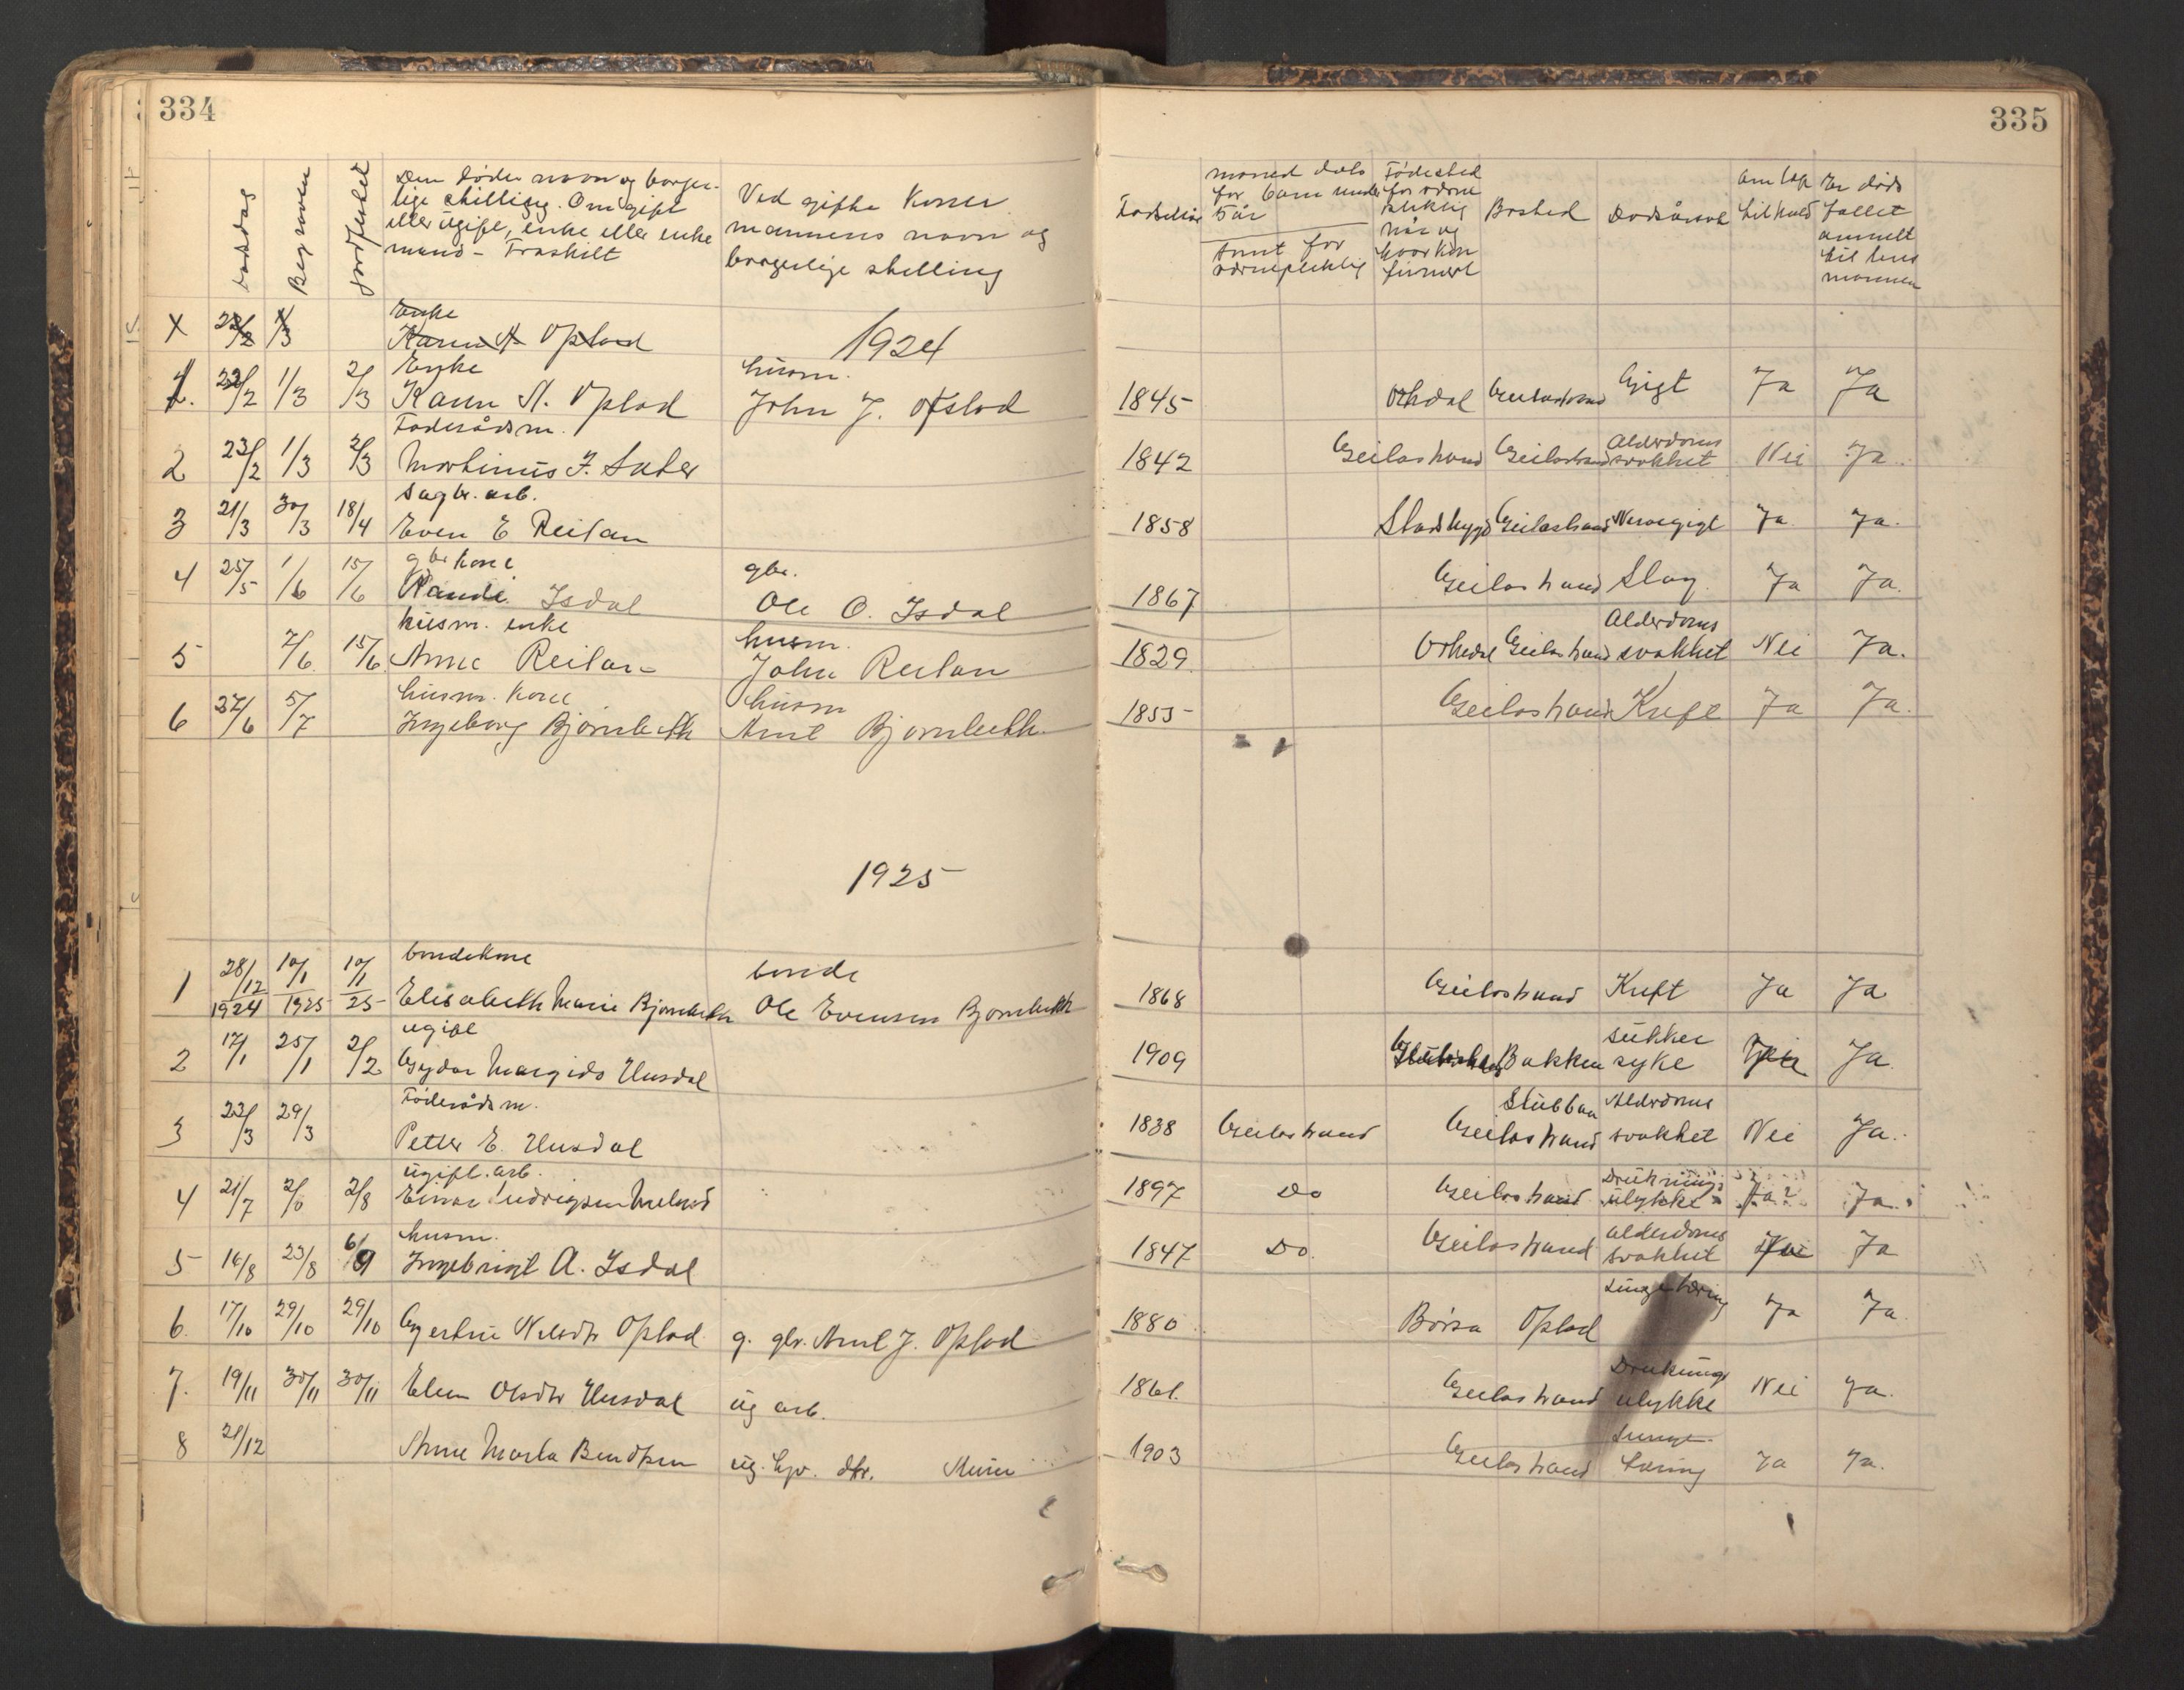 334
335
Dødsdag
Begraven
Jordfestet
Den dødes navn og borger-
lige stilling. Om gift
eller ugift, enke eller enke
mand - Fraskilt
Ved gifte Koner
mannens navn og
borgerlige stilling
Fødselsår
maaned dato
for barn under
5 år
Amt for
vernepliktig
Fødested
for verne
pliktig
når og
hvor kon
firmert
Bosted
Dødsårsak
Om læge
tilkaldt
Er døds
fallet
anmelt
til lens
mannen
X 22/2 1/3 Enke
Karen A Opland
1924
1. 22/2 1/3 2/3 Enke
Karen A. Opland husm. John J. Opland 1845 Orkdal Geilostrand Gigt Ja Ja
2 23/2 1/3 2/3 Føderådsm.
Martinus J. Sæter 1842 Geilostrand Geilostrand Alderdoms
svakhet Nei Ja
3 21/3 30/3 18/4 sagbr. arb.
Even E Reitan 1858 Stadsbygd Geilostrand Nervegigt Ja Ja.
4 25/5 1/6 15/6 gbr kone
Randi Isdal gbr.
Ole O. Isdal 1867 Geilostrand Slag Ja Ja.
5 7/6 15/6 husm. enke
Anne Reitan husm.
John Reitan 1829 Orkedal Geilostrand Alderdoms
svakhet Nei Ja.
6 27/6 5/7 husm. kone
Ingeborg Bjørnbeth husm
Arnt Bjørnbeth 1855 Geilostrand Kreft Ja Ja.
1925
1 28/12 1924 10/1 1925 10/1 25 bondekone
Elisabeth Marie Bjørnbeth bonde
Ole Evensen Bjørnbeth 1868 Geilostrand Kreft Ja Ja
2 17/1 25/1 2/2 ugift
Gydar Margido Husdal 1909 Bakken sukker
syke Ja.
3 22/3 29/3 Føderådsm.
Petter E. Husdal 1838 Geilostrand Stubban
Geilostrand Alderdoms
svakhet Nei Ja.
4 21/7 2/8 2/8 ugift. arb.
Einar 1897 Do Geilostrand Druknings
ulykke Ja? Ja.
5 16/8 23/8 6/9 husm.
Ingebrigt A. Isdal 1847 Do. Geilostrand alderdoms
svakhet Nei Ja
6. 17/10 29/10 29/10 Gjertine Nilsdtr Opland g. gbr. Arnt J. Opland 1880 Børsa Opland Lungetæring Ja Ja.
7. 19/11 30/11 30/11 Elen Olsdtr Husdal ug arb. 1861. Geilostrand Druknings
ulykke Nei Ja.
8 21/12 Anne Marta Bendtsen ug. hjv. dtr. 1903 Geilostrand Lunge-
tæring Ja Ja.